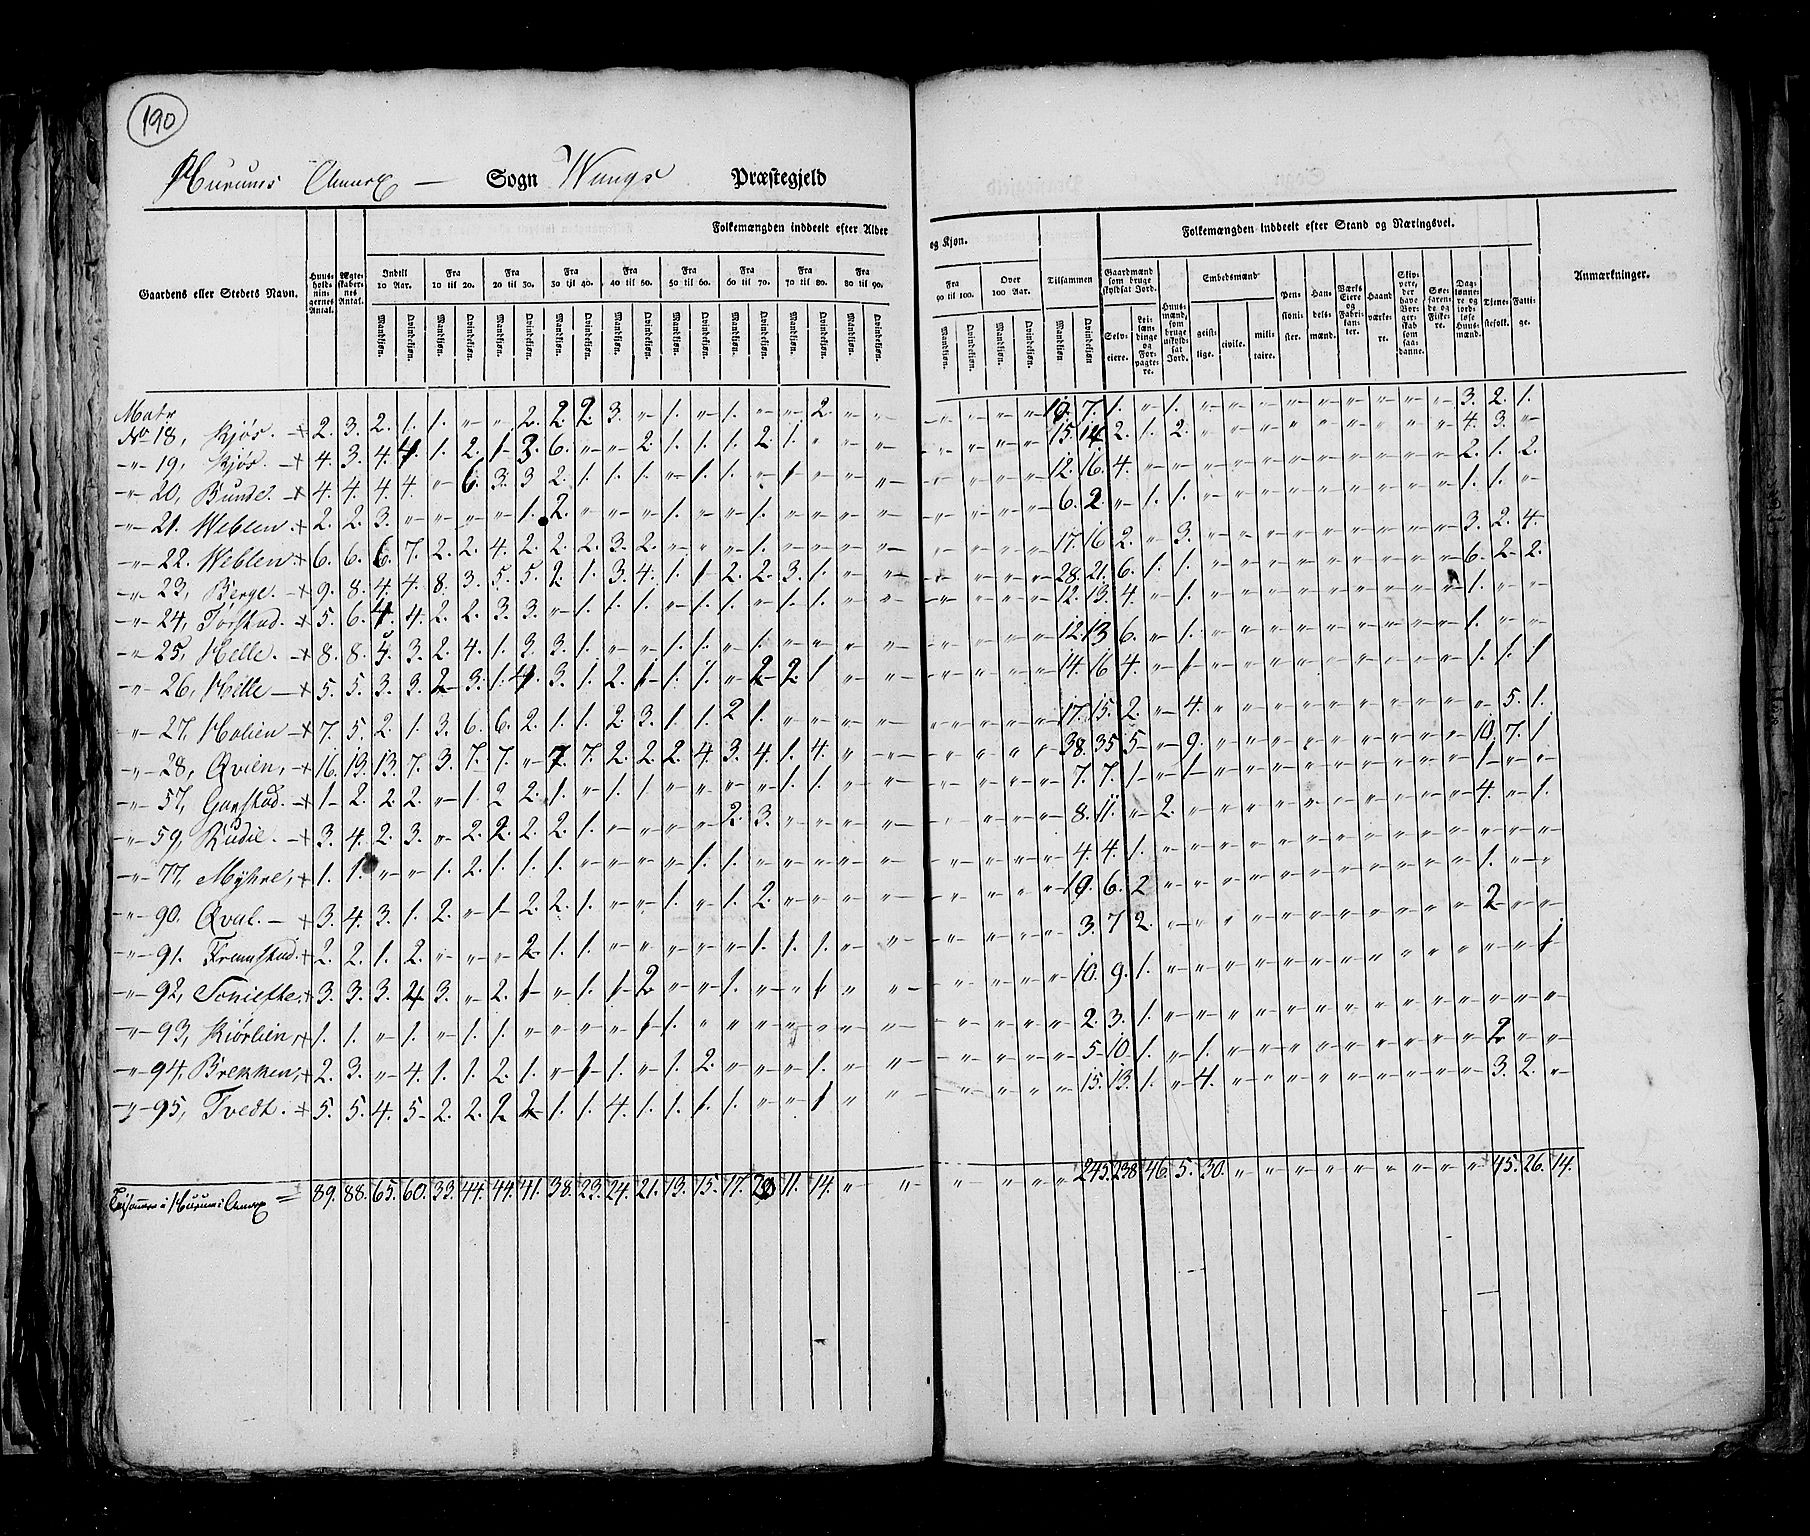 190
Hurums Annex — Sogn Wangs Præstegjeld
Gaardens eller Stedets Navn.
Huus-holdnin-gernes Antal.
Ægte-skaber-nes Antal.
Folkemængden inddeelt efter Alder
og Kjøn.
Indtil 10 Aar.
Fra 10 til 20.
Fra 20 til 30.
Fra 30 til 40.
Fra 40 til 50.
Fra 50 til 60.
Fra 60 til 70.
Fra 70 til 80.
Fra 80 til 90.
Fra 90 til 100.
Over 100 Aar.
Tilsammen
Mandkjøn. Qvindekjøn.
Folkemængden inddeelt efter Stand og Næringsvei.
Gaardmænd som bruge skyldsat Jord.
Selv-eiere.
Lei-læn-dinge og For-pagte-re.
Huus-mænd, som bruge uskyld-sat Jord.
Embedsmænd
geist-lige.
civile.
mili-taire.
Pen-sioni-ster.
Han-dels-mænd.
Værks Eiere og Fabri-kan-ter.
Haand værke-re.
Skip-pere, der have Bor-ger-skab som saa-danne.
Søe-faren-de og Fiske-re.
Dag-lønne-re og jord-løse Huus-mænd.
Tjene-stefolk.
Fatti-ge.
Anmærkninger.
Matr
No 18, Kjøs. 2. 3. 2. 1. 1. „ „ 2. 2. 2. 3. „ 1. „ 1. „ „ 2. „ „ „ „ „ „ 10. 7. 1. „ 1. „ „ „ „ „ „ „ „ „ 3. 2. 1.
„ 19, Kjøs. 4. 3. 4. 4. 1. 2. 1. 3. 6. „ „ 2. 1. 1. 1. 2. 1. „ „ „ „ „ „ „ 15. 14. 2. 1. 2. „ „ „ „ „ „ „ „ „ 4. 3. „
„ 20, Bunde. 4. 4. 4. 4. „ 6. 3. 3. 2. 1. 1. 1. „ 1. 1. „ 1. „ „ „ „ „ „ „ 12. 16. 4. „ „ „ „ „ „ „ „ „ „ „ 2. 1. 2.
„ 21. Weblen. 2. 2. 3. „ „ „ „ 1. 2. „ „ „ 1. „ „ 1. „ „ „ „ „ „ „ „ 6. 2. „ 1. 1. „ „ „ „ „ „ „ „ „ 1. 1. „
„ 22. Weblen. 6. 6. 6. 7. 2. 2. 4. 2. 2. 2. 3. 2. „ „ „ 1. „ „ „ „ „ „ „ „ 17. 16. 2. „ 3. „ „ „ „ „ „ „ „ „ 3. 2. 4.
„ 23, Berge. 9. 8. 4. 4. 8. 3. 5. 5. 2. 1. 3. 4. 1. 1. 2. 2. 3. 1. „ „ „ „ „ „ 28. 21. 6. 1. 1. „ „ „ „ „ „ „ „ „ 6. 2. 2.
„ 24, Tørstad. 5. 6. 4. 4. 2. 2. 3. 3. „ 1. 1. 1. „ 1. 1. „ 1. 1. „ „ „ „ „ „ 12. 13. 4. „ 1. „ „ „ „ „ „ „ „ „ 1. „ „
„ 25, Helle. 8. 8. 5. 3. 2. 4. 1. 3. 3. 1. „ „ 1. 1. „ 1. „ „ „ „ „ „ „ „ 12. 13 6. „ 1. „ „ „ „ „ „ „ „ „ 1. „ „
„ 26, Hille 5. 5. 3. 3. 2. 3. 1. 4. 3. 1. 2. 1. 1. 1. „ 2. 2. 1 „ „ „ „ „ „ 14. 16 4. „ 1 „ „ „ „ „ „ „ „ „ 1. 1. 1
„ 27, Holien 7. 5. 2. 1. 3. 6. 6. 2. 1. 1. 2. 3. 1. 1. 2 1. „ „ „ „ „ „ „ „ 17. 15. 2. „ 4. „ „ „ „ „ „ „ „ „ „ 5. 1.
„ 28, Qvien, 16. 19. 13. 7. 3. 7. 7. „ 7. 7. 2. 2. 2. 4. 3. 4. 1. 4. „ „ „ „ „ „ 38. 35. 5 „ 9. „ „ „ „ „ „ „ „ „ 10. 7. 1
„ 57, Garstad. 1. 2. 2. 2. „ 1. 2. 2. 1. „ 1. 1. „ „ „ „ 1. 1. „ „ „ „ „ „ 7. 7. 1. „ 1. „ „ „ „ „ „ „ „ „ 1. „ „
„ 59, Rudie. 3. 4. 2. 3. „ 2. 2. 2. 2. 1. „ „ „ „ 2. 3. „ „ „ „ „ „ „ „ 8. 11. „ 2. „ „ „ „ „ „ „ „ „ „ 4. „ 1.
„ 77, Myhre, 1. 1. „ „ 1. 2. 1. 1. 1. „ „ „ „ 1. 1. „ „ „ „ „ „ „ „ „ 4. 4. 1. „ „ „ „ „ „ „ „ „ „ „ „ „ „
„ 90, Qval. 3. 4. 3. 1. 2. „ 1. 2. 2. 1. „ „ 1. „ 1. 2. „ „ „ „ „ „ „ „ 10. 6. 2 „ „ „ „ „ „ „ „ „ „ „ 1. „ „
„ 91. Framstad. 2. 2. 1. 2. „ „ „ 2. 1. 1. „ „ „ „ „ 1. 1. 1. „ „ „ „ „ „ 3. 7 2. „ „ „ „ „ „ „ „ „ „ „ 2 „ „
„ 92, 3. 3. 3. 4 3. „ 2. 1 „ 1. 1. 2 „ „ 1. „ „ 1 „ „ „ „ „ „ 10. 9. 1. „ „ „ „ „ „ „ „ „ „ „ „ „ 1
„ 93, Kiørlien, 1. 1. „ 1. „ 1. 1. „ „ „ „ 1 1. „ „ „ „ „ „ „ „ „ „ „ 2. 3. 1. „ „ „ „ „ „ „ „ „ „ „ „ „ „
„ 94, Brekken, 2. 3. „ 4. 1. 1. 2. 1. „ 1 1. „ 1. 2. „ „ „ 1. „ „ „ „ „ „ 5 10. 1. „ 1. „ „ „ „ „ „ „ „ „ 2 „ „
„ 95, Tvedt. 5. 5. 4. 5 2. 2. 2 2 1. 1. 4. 1. 1. 1. 1. „ „ 1 „ „ „ „ „ „ 15. 13. 1. „ 4. „ „ „ „ „ „ „ „ „ 3. 2. „
Tilsammen i Hurums Annex = 89. 88. 65. 60. 33. 44. 44. 41. 38. 23. 24. 21. 13. 15. 17. 20 11. 14. „ „ „ „ „ „ 245. 238 46. 5. 30. „ „ „ „ „ „ „ „ „ 45. 26. 14.